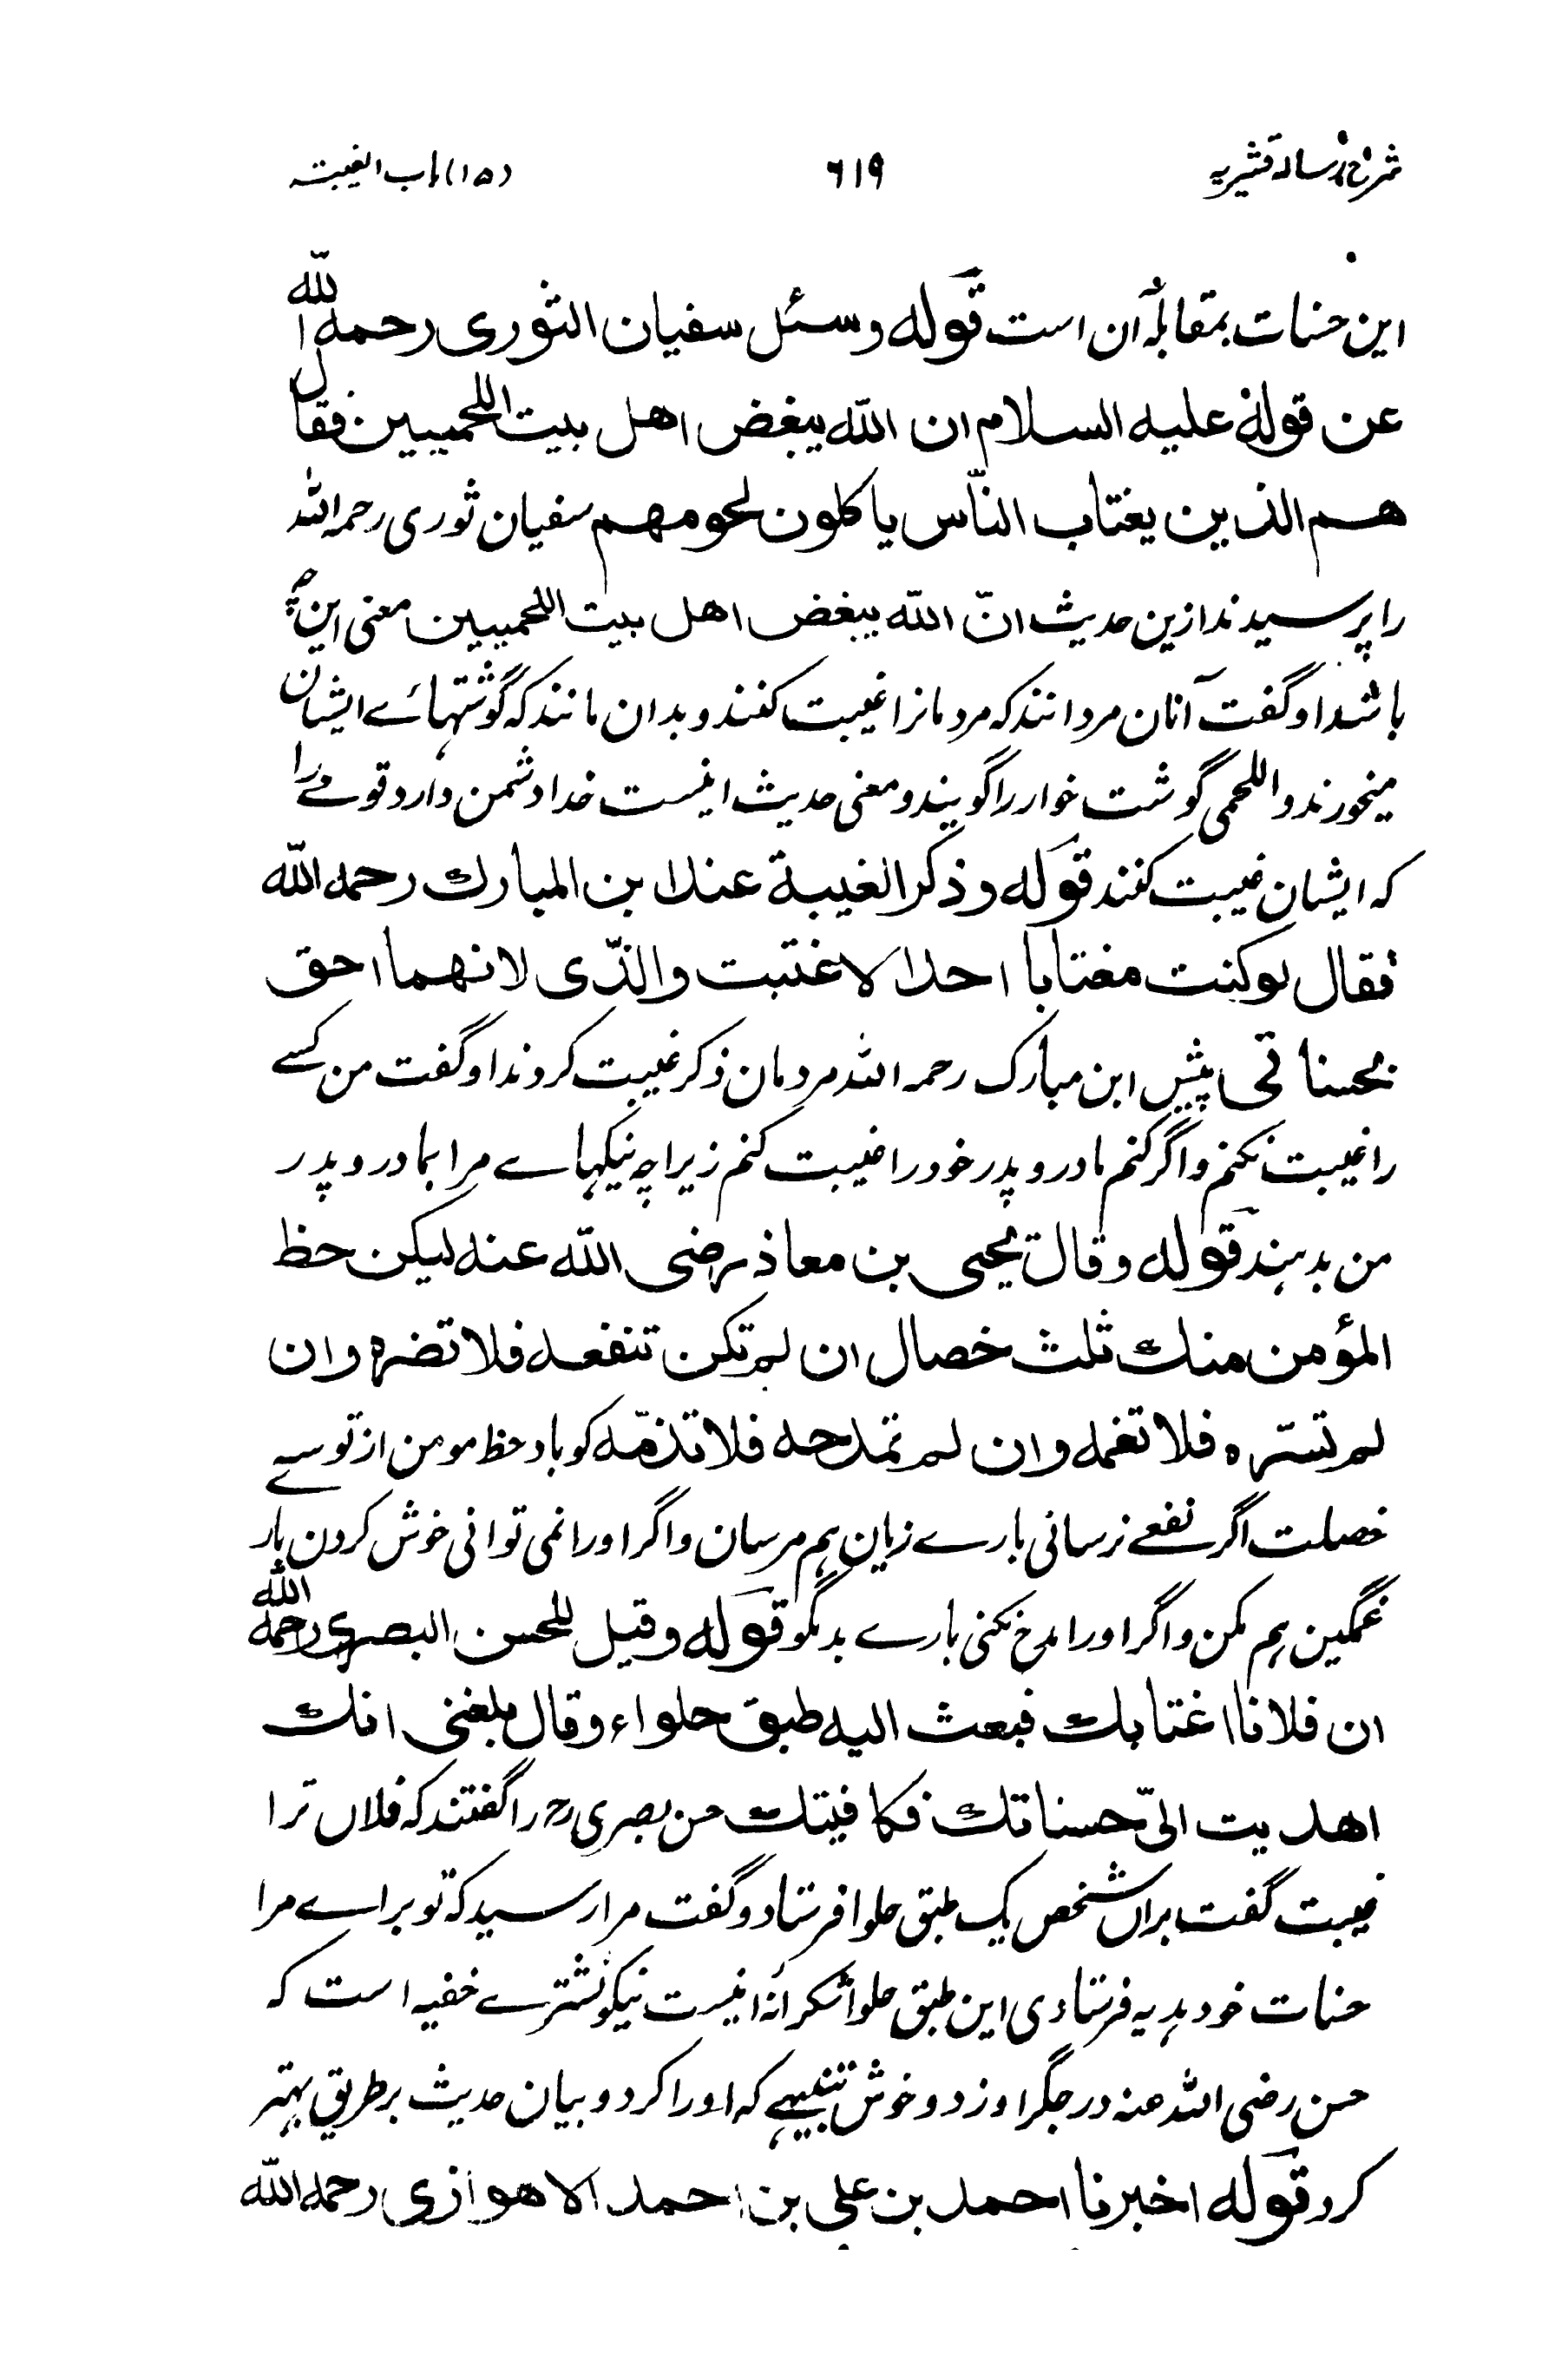 شرح رسالۀ قشیریه ۶۱۹ (۱۵) باب الغیبت
این حسنات بمقابلۂ آن است قوله وسئل سفیان الثوری رحمه الله
عن قوله علیه السلام ان الله یبغض اهل بیت اللحمیین فقال
هم الذین یغتاب الناس یاکلون لحومهم سفیان ثوری رحمه الله
را پرسیدند ازین حدیث انّ الله یبغض اهل بیت اللحمیین معنی این چه
باشد او گفت آنان مردانند که مردمانرا غیبت کنند و بدان مانند که گوشتهائے ایشان
میخورند و اللحمی گوشت خوار را گویند و معنی حدیث اینست خدا دشمن دارد قومے را
که ایشان غیبت کنند قوله و ذکر الغیبة عند ابن المبارك رحمه الله
فقال لو کنت مغتابا احدا لاغتبت والدّی لانهما احق
بحسناتی پیش ابن مبارک رحمه الله مردمان ذکر غیبت کردند او گفت من کسے
را غیبت نکنم و اگر کنم مادر و پدر خود را غیبت کنم زیراچه نیکیهاے مرا بمادر و پدر
من بدهند قوله وقال یحیی بن معاذ رضی الله عنه لیکن حظ
المؤمن منك ثلث خصال ان لم تکن تنفعه فلا تضره وان
لم تسّره فلا تغمه وان لم تمدحه فلا تذمّه کو باد حظ مومن از تو سه
خصلت اگر نفعے نرسانی بارے زیان هم مرسان و اگر او را نمی توانی خوش کردن بار
غمگین هم مکن و اگر او را مدح نکنی بارے بد مگو قوله وقیل للحسن البصری رحمه الله
ان فلانا اغتابك فبعث الیه طبق حلواء وقال بلغنی انك
اهدیت الیّ حسناتك فکافیتك حسن بصری رح را گفتند که فلاں ترا
غیبت گفت براں شخص یک طبق حلوا فرستاد و گفت مرا رسید که تو براے مرا
حسنات خود هدیه فرستادی این طبق حلوا شکرانۂ اینست نیکو نشترے خفیه است که
حسن رضی الله عنه در جگر او زد و خوش تنبیهے که او را کرد و بیان حدیث بر طریق بهتر
کرد قوله اخبرنا احمد بن علی بن احمد الاهوازی رحمه الله